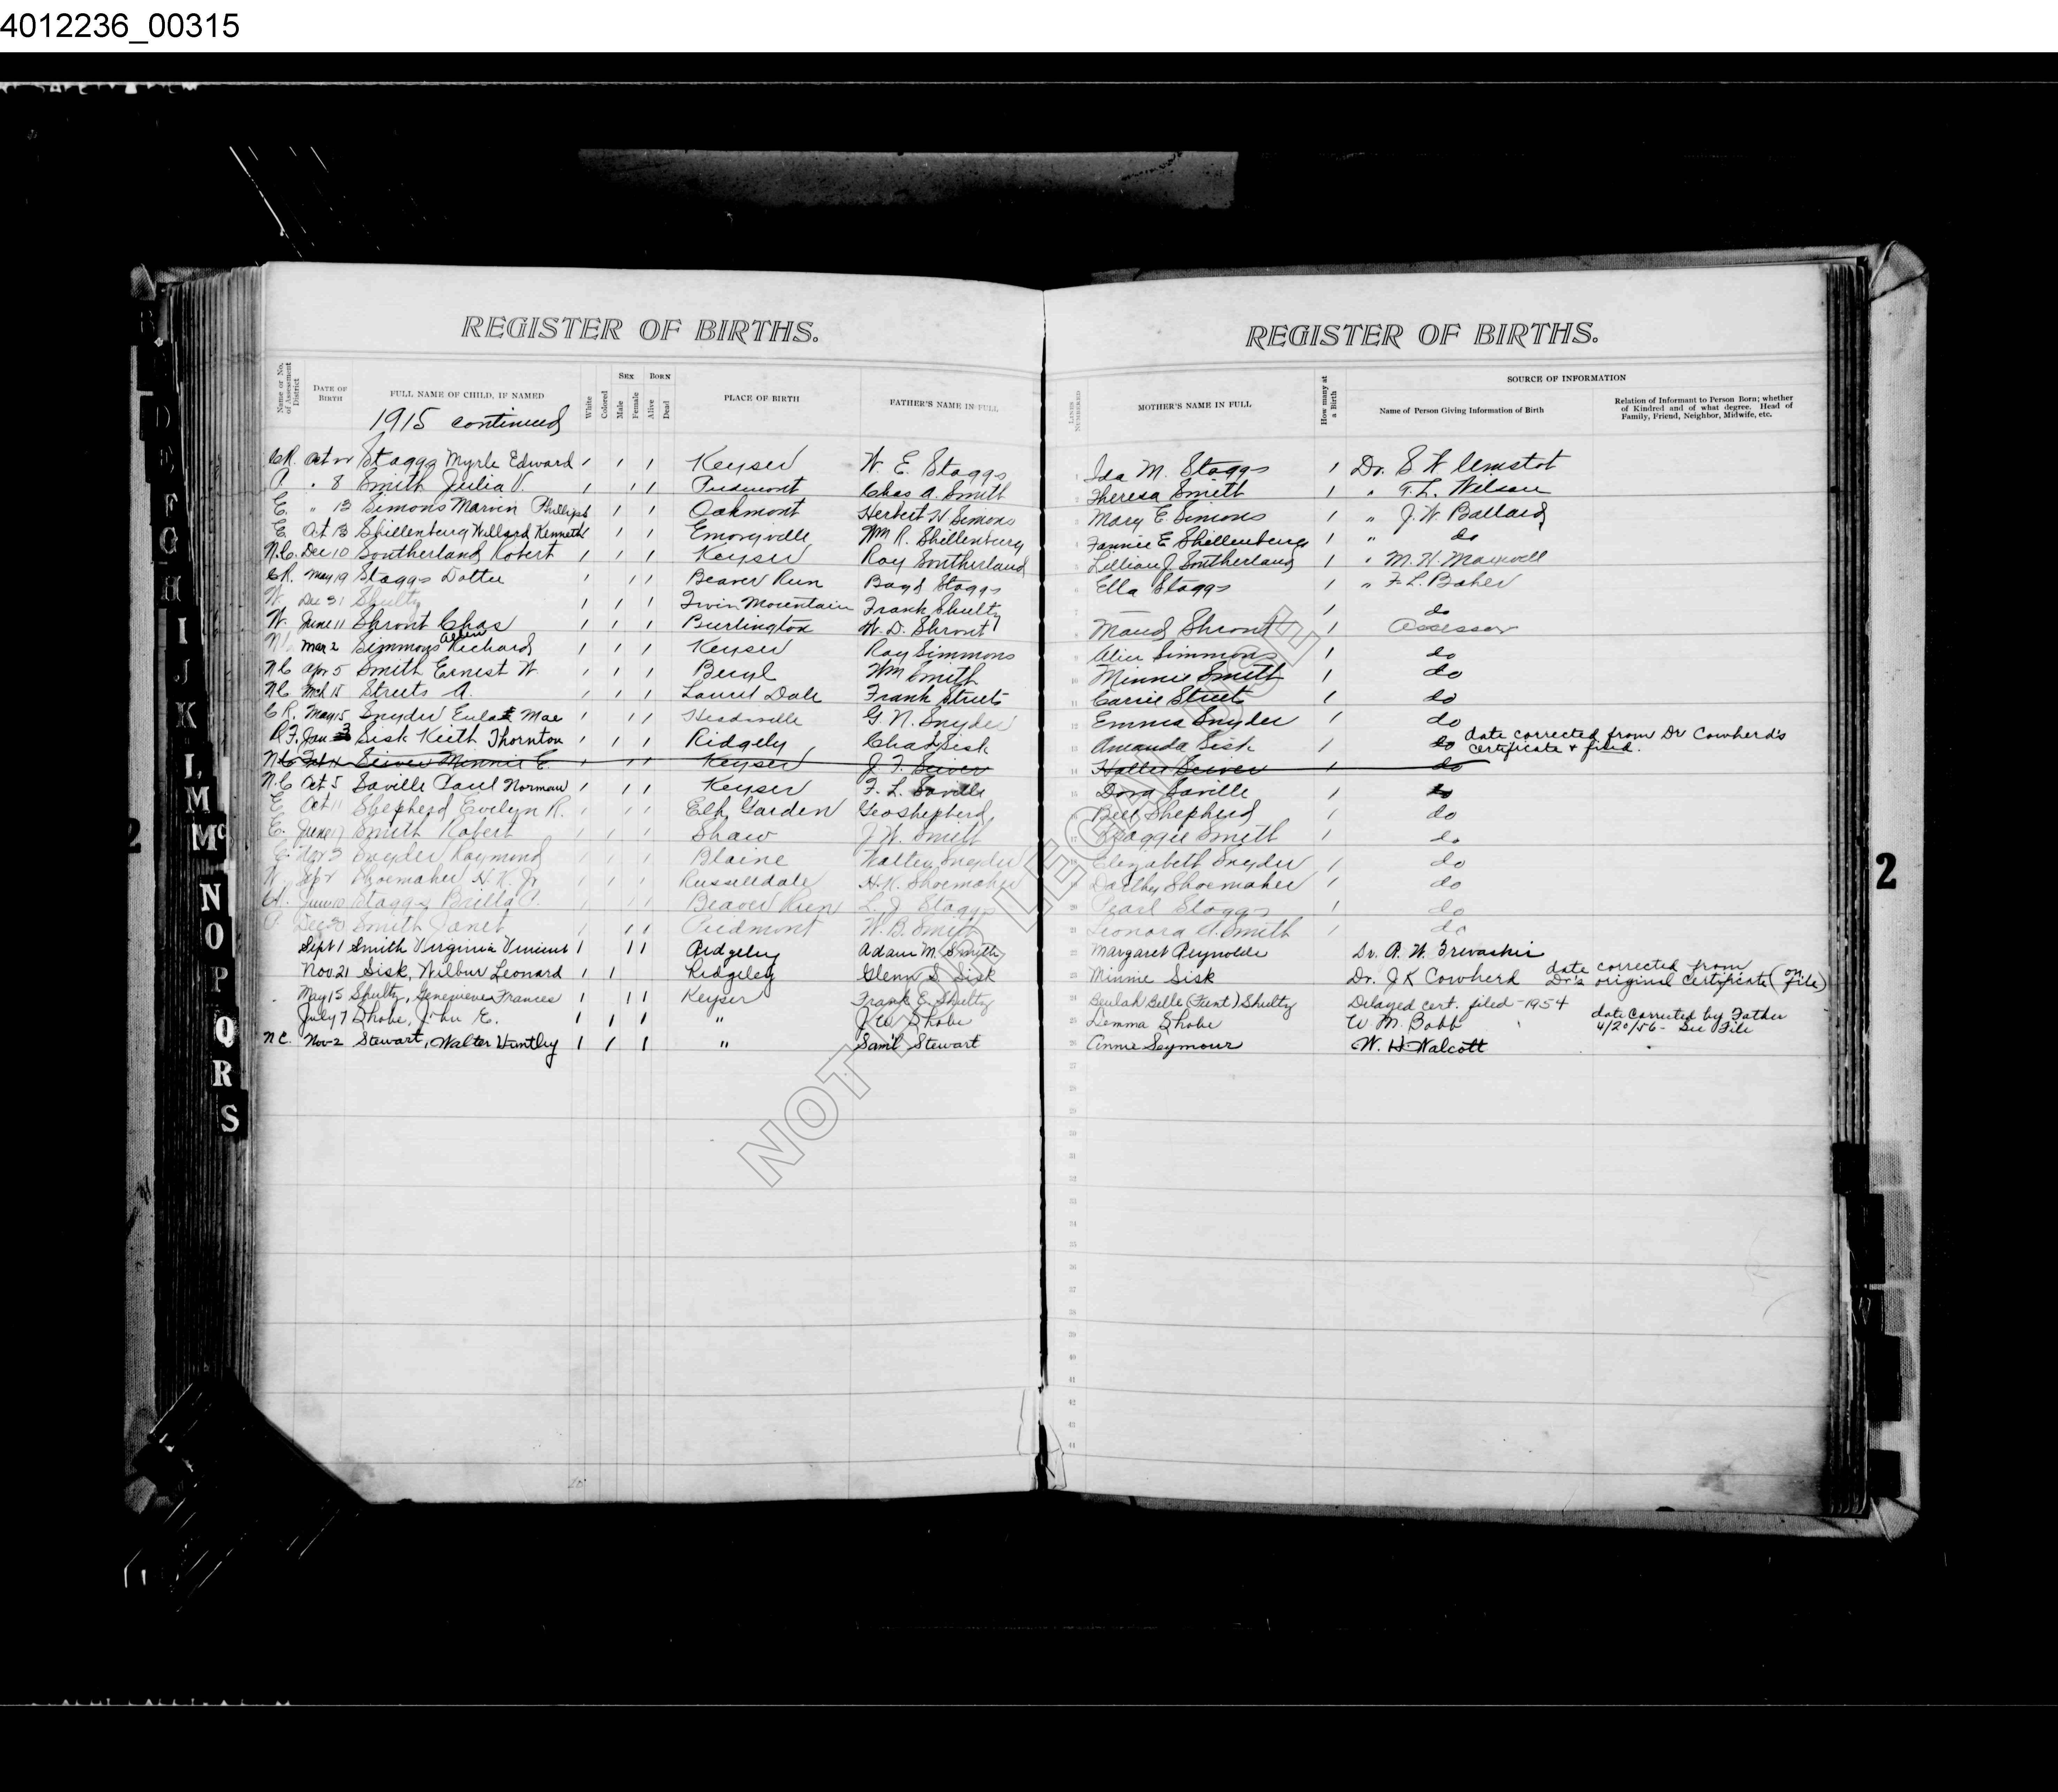 4012236_00315
REGISTER OF BIRTHS.
Name or No. of Assessment District
DATE OF BIRTH
FULL NAME OF CHILD, IF NAMED
White
Colored
SEX
Male
Female
BORN
Alive
Dead
PLACE OF BIRTH
FATHER'S NAME IN FULL
1915 continued
Oct Staggs Myrle Edward 1 1 1 Keyser W. E. Staggs
P " 8 Smith Julia V. 1 1 1 Piedmont Chas A. Smith
E. " 13 Simons Marvin Phillips 1 1 1 Oakmont Herbert N Simons
E Oct 13 Shillenburg Willard Kenneth 1 1 1 Emoryville Wm R. Shillenburg
N.C. Dec 10 Southerland Robert 1 1 1 Keyser Roy Southerland
C.R. May 19 Staggs Dottie 1 1 1 Beaver Run Boyd Staggs
W. Dec 31 Shultz 1 1 1 Twin Mountain Frank Shultz
W. June 11 Shront Chas 1 1 1 Burlington W. D. Shront
N. Mar 2 Simmons Richard 1 1 1 Keyser Roy Simmons
N.C Apr 5 Smith Earnest W. 1 1 1 Beryl Wm Smith
N.C Mch 15 Streets A. 1 1 1 Laurel Dale Frank Streets
C.R. May 15 Snyder Eula Mae 1 1 1 Headsville G. N. Snyder
R.F. Jan 3 Sisk Keith Thornton 1 1 1 Ridgely Chas Sisk
N.C Seiver Minnie E. 1 1 1 Keyser J. T. Seiver
N.C Oct 5 Saville Paul Norman 1 1 1 Keyser F. L. Saville
E Oct 11 Shepherd Evelyn R. 1 1 1 Elk Garden Geo Shepherd
E. June 17 Smith Robert 1 1 1 Shaw J. W. Smith
E Nov 3 Snyder Raymond 1 1 1 Blaine Walter Snyder
W. Shoemaker H. K. Jr 1 1 1 Russelldale H. K. Shoemaker
Staggs 1 1 1 Beaver Run L. J. Staggs
P. Dec 30 Smith Janet 1 1 1 Piedmont W. B. Smith
Sept 1 Smith Virginia Vincent 1 1 1 Ridgeley Adam M. Smith
Nov 21 Sisk, Wilbur Leonard 1 1 Ridgeley Glenn S. Sisk
May 15 Shultz, Genevieve Frances 1 1 1 Keyser Frank E. Shultz
July 7 Shobe, John E. 1 1 1 " J W Shobe
N C. Nov-2 Stewart, Walter Huntley 1 1 1 " Sam'l Stewart
REGISTER OF BIRTHS.
LINES NUMBERED
MOTHER'S NAME IN FULL
How many at a Birth
SOURCE OF INFORMATION
Name of Person Giving Information of Birth
Relation of Informant to Person Born; whether of Kindred and of what degree. Head of Family, Friend, Neighbor, Midwife, etc.
1 Ida M. Staggs 1 Dr.
2 Theresa Smith 1 " T. L. Wilson
3 Mary E. Simons 1 " J. W. Ballard
4 Fannie E Shillenburg 1 " do
5 Lillian J. Southerland 1 " M. H. Maxwell
6 Ella Staggs 1 " F. L. Baker
7 — 1 do
8 Maud Shront 1 Assessor
9 Alice Simmons 1 do
10 Minnie Smith 1 do
11 Carrie Streets 1 do
12 Emma Snyder 1 do
13 Amanda Sisk 1 do date corrected from Dr Cowherd's
certificate & filed.
14 Hallie Seiver 1 do
15 Dora Saville 1 do
16 Bell Shepherd 1 do
17 Maggie Smith 1 do
18 Elizabeth Snyder 1 do
19 Shoemaker 1 do
20 Pearl Staggs 1 do
21 Leonora A. Smith 1 do
22 Margaret Reynolds Dr. A. W.
23 Minnie Sisk Dr. J K Cowherd date corrected from
Dr's original Certificate (on file)
24 Beulah Belle Shultz Delayed cert. filed - 1954
25 Lemma Shobe W M. Babb date corrected by Father
4/20/56 - See File
26 Annie Seymour W. H Walcott
27
28
29
30
31
32
33
34
35
36
37
38
39
40
41
42
43
44
NOT FOR LEGAL USE
D
E
F
G
H
I
J
K
L
M
Mc
N
O
P
Q
R
S
2
2